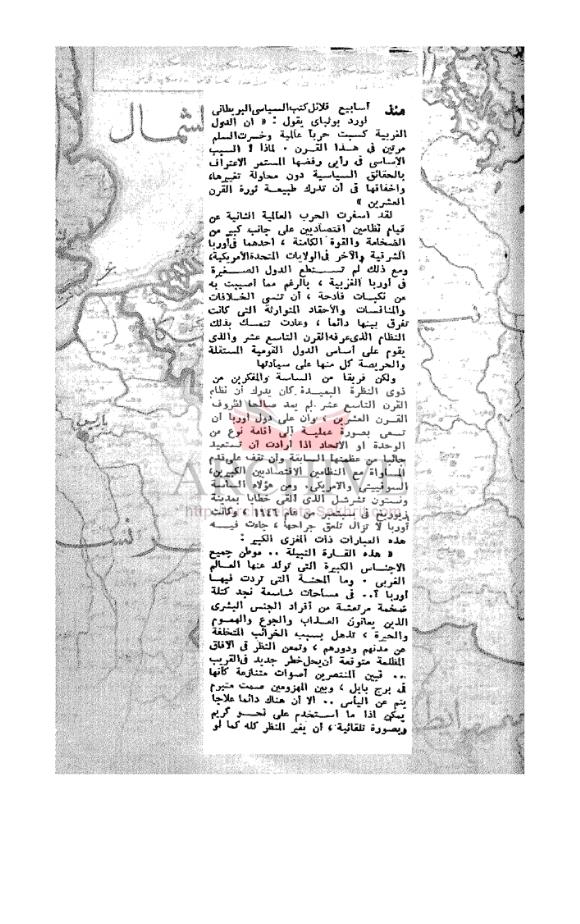 منذ أسابيع قلائل كتب السياسى البريطانى
لورد بولباى يقول : « ان الدول
الغربية كسبت حربا عالمية وخسرت السلم
مرتين فى هذا القرن . لماذا ؟ السبب
الأساسى فى رأيى رفضها المستمر الاعتراف
بالحقائق السياسية دون محاولة تغييرها،
واخفاقها فى أن تدرك طبيعة ثورة القرن
العشرين »
لقد أسفرت الحرب العالمية الثانية عن
قيام نظامين اقتصاديين على جانب كبير من
الضخامة والقوة الكامنة ، أحدهما فى أوربا
الشرقية والآخر فى الولايات المتحدة الأمريكية،
ومع ذلك لم تستطع الدول الصغيرة
فى أوربا الغربية ، بالرغم مما أصيبت به
من نكبات فادحة ، أن تنسى الخلافات
والمنافسات والأحقاد المتوارثة التى كانت
تفرق بينها دائما ، وعادت تتمسك بذلك
النظام الذى عرفه القرن التاسع عشر والذى
يقوم على أساس الدول القومية المستقلة
والحريصة كل منها على سيادتها
ولكن فريقا من الساسة والمفكرين من
ذوى النظرة البعيدة كان يدرك أن نظام
القرن التاسع عشر لم يعد صالحا لظروف
القرن العشرين ، وأن على دول أوربا أن
تسعى بصورة عملية إلى اقامة نوع من
الوحدة أو الاتحاد اذا أرادت أن تستعيد
جانبا من عظمتها السابقة وأن تقف على قدم
المساواة مع النظامين الاقتصاديين الكبيرين،
السوفييتى والأمريكى. ومن هؤلاء الساسة
ونستون تشرشل الذى ألقى خطابا بمدينة
زيوريخ فى سبتمبر من عام ١٩٤٦ ، وكانت
أوربا لا تزال تلعق جراحها ، جاءت فيه
هذه العبارات ذات المغزى الكبير :
« هذه القارة النبيلة .. موطن جميع
الأجناس الكبيرة التى تولد عنها العالم
الغربى . وما المحنة التى تردت فيها
أوربا ؟.. فى مساحات شاسعة نجد كتلة
ضخمة مرتعشة من أفراد الجنس البشرى
الذين يعانون العذاب والجوع والهموم
والحيرة ، تذهل بسبب الخرائب المتخلفة
عن مدنهم ودورهم ، وتمعن النظر فى الآفاق
المظلمة متوقعة أن يحل خطر جديد فى القريب
.. فبين المنتصرين أصوات متنازعة كأنها
فى برج بابل ، وبين المهزومين صمت متبرم
ينم عن اليأس .. الا أن هناك دائما علاجا
يمكن اذا ما استخدم على نحو كريم
وبصورة تلقائية ، أن يغير المنظر كله كما لو
الشمال
باريس
فرنسا
ARCHIVE